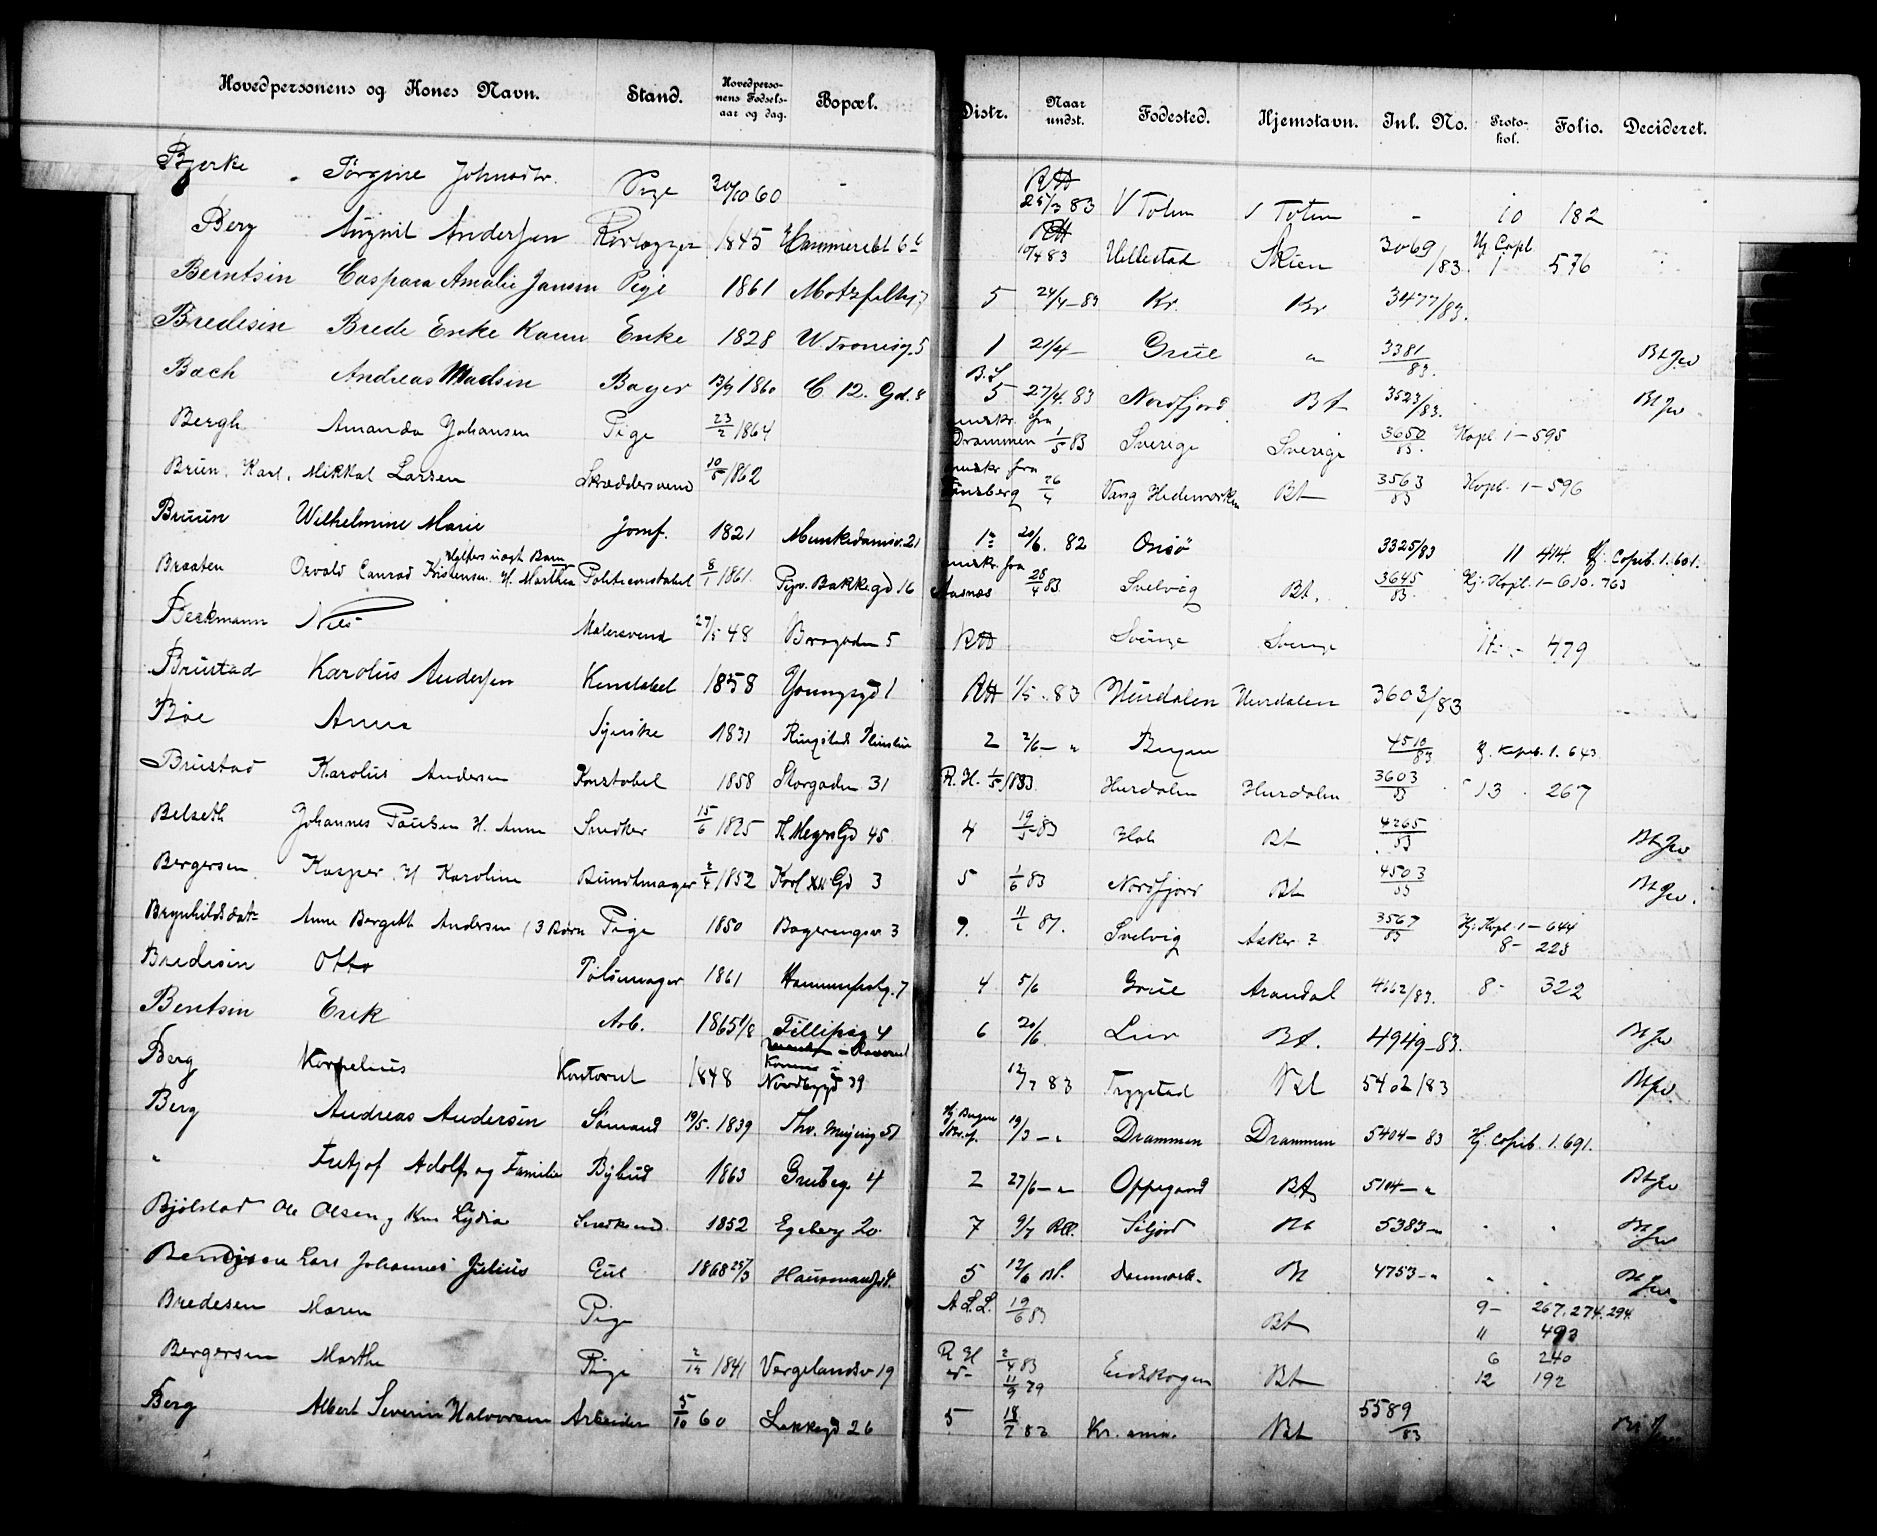 Hovedpersonens og Kones Navn. Stand. Hovedperso-nens Fødsels-aar og dag. Bopæl. Distr. Naar undst. Fødested. Hjemstavn. Inl. No. Proto-kol. Folio. Decideret.
Bjerke Jørgine Johnsdtr. Pige 30/10 60 - RH 25/3 83 V Toten V Toten - 10 182
Berg August Andersen Rørlægger 1845 RH 10/4 83 Skien 3069/83 Hj. Copb. 1 576
Berntsen Caspara Amalie Jansen Pige 1861 5 24/4-83 Kr. Kr 3477/83.
Bredesen Brede Enke Karen Enke 1828 5 1 21/4- Grue " 3381/83. Bt Jev
Bach Andreas Madsen Bager 13/9 1860 C. 12. Gd. 8 B.L. 5 27/4. 83 Nordfjord Bt 3523/83. Bt Jev
Bergh Amanda Johansen Pige 23/2 1864 fra Drammen 1/5 83 Sverige Sverige 3650/83. Kopb. 1-595
Brun. Karl. Mikkal Larsen Skræddersvend 10/5 1862 fra Tønsberg 26/4 Vang Hedemarken Bt 3563/83 Kopb. 1-596
Bruun Wilhelmine Marie Jomf. 1821 Munkedamsv. 21 20/6. 82 Onsø 3325/83 11 414. Hj. Copieb. 1.601.
Braaten Osvald Conrad Kristensen H. Marthea Politiconstabel 8/1 1861. Bakkegd 16 fra Aasnes 28/4 83. Svelvig Bt. 3645/83. Hj. Kopb. 1-610. 763
Beckmann Nils Malersvend 27/5 48 5 RH Sverige Sverige 11- 479
Brustad Karolus Andersen Konstabel 1858 Youngsgd 1 RH 1/5.83 Hurdalen Hurdalen 3603/83
Bøe Anna Syerske 1831 2 2/6- " Bergen 4510/83 Hj. Kopieb. 1. 643
Brustad Karolus Andersen Konstabel 1858 Storgaden 31 R. H. 1/5 1883. Hurdalen Hurdalen 3603/83 13 267
Belseth Johannes Paulsen H. Anne Snedker 15/6 1825 H Meyers Gd 45 4 19/5-83 Hol Bt 4265/83 Bt Jev
Bergersen Kasper. H Karoline Bundtmager 2/4 1852 Karl XII Gd 3 5 1/6 83 Nordfjord Bt 4503/83 Bt Jev.
Brynhildsdat- Anne Bergitte Andersen (3 Børn Pige 1850 Bogerengsv 3 9. 11/2 87. Svelvig Asker ? 3567/83 Hj. Kopb. 1-644
8- 223
Bredesen Otto Pølsemager 1861 7 4 5/6 Grue Arendal 4662/83. 8- 322
Bentsen Erik Arb. 1865 1/8 Fillipsg 4 6 20/6. Lier Bt. 4949-83. Bt Jev
Berg Kornelius Kontorist 1848 Nordbygd 39 12/7 83 Trygstad Bt 5402/83 Bt Jev
Berg Andreas Andersen Sømand 19/5. 1839 Thv. Meyersg 51 Hj Bergen 19/3-" Drammen Drammen 5404-83 Hj. Copieb. 1.691.
" Fritjof Adolf og Familie Bybud 1863 Grubeg. 4 2 27/6-" Oppegaard Bt 5104-" Bt Jev
Bjølstad Ole Olsen og Kone Lydia 1852 Egeberg 20. 7 9/7 Siljord Bt 5383-" Bt Jev
Bendixen Lars Johannes Julius 1868 25/3 5 12/6 Danmark. Bt 4753-" Bt Jev.
Bredesen Maren Pige A.L.L. 19/6 83 Bt 9- 267.274.294.
" 493
Bergersen Marthe Pige 2/12 1841 Vergelandsv 19 R H 2/4 83 Eidskogen Bt 6 240
11/9 79 12 192
Berg Albert Severin Halvorsen Arbeider 5/10 60 Lakkegd 26 5 18/7 83 Kr. Bt 5589/83 Bt Jev